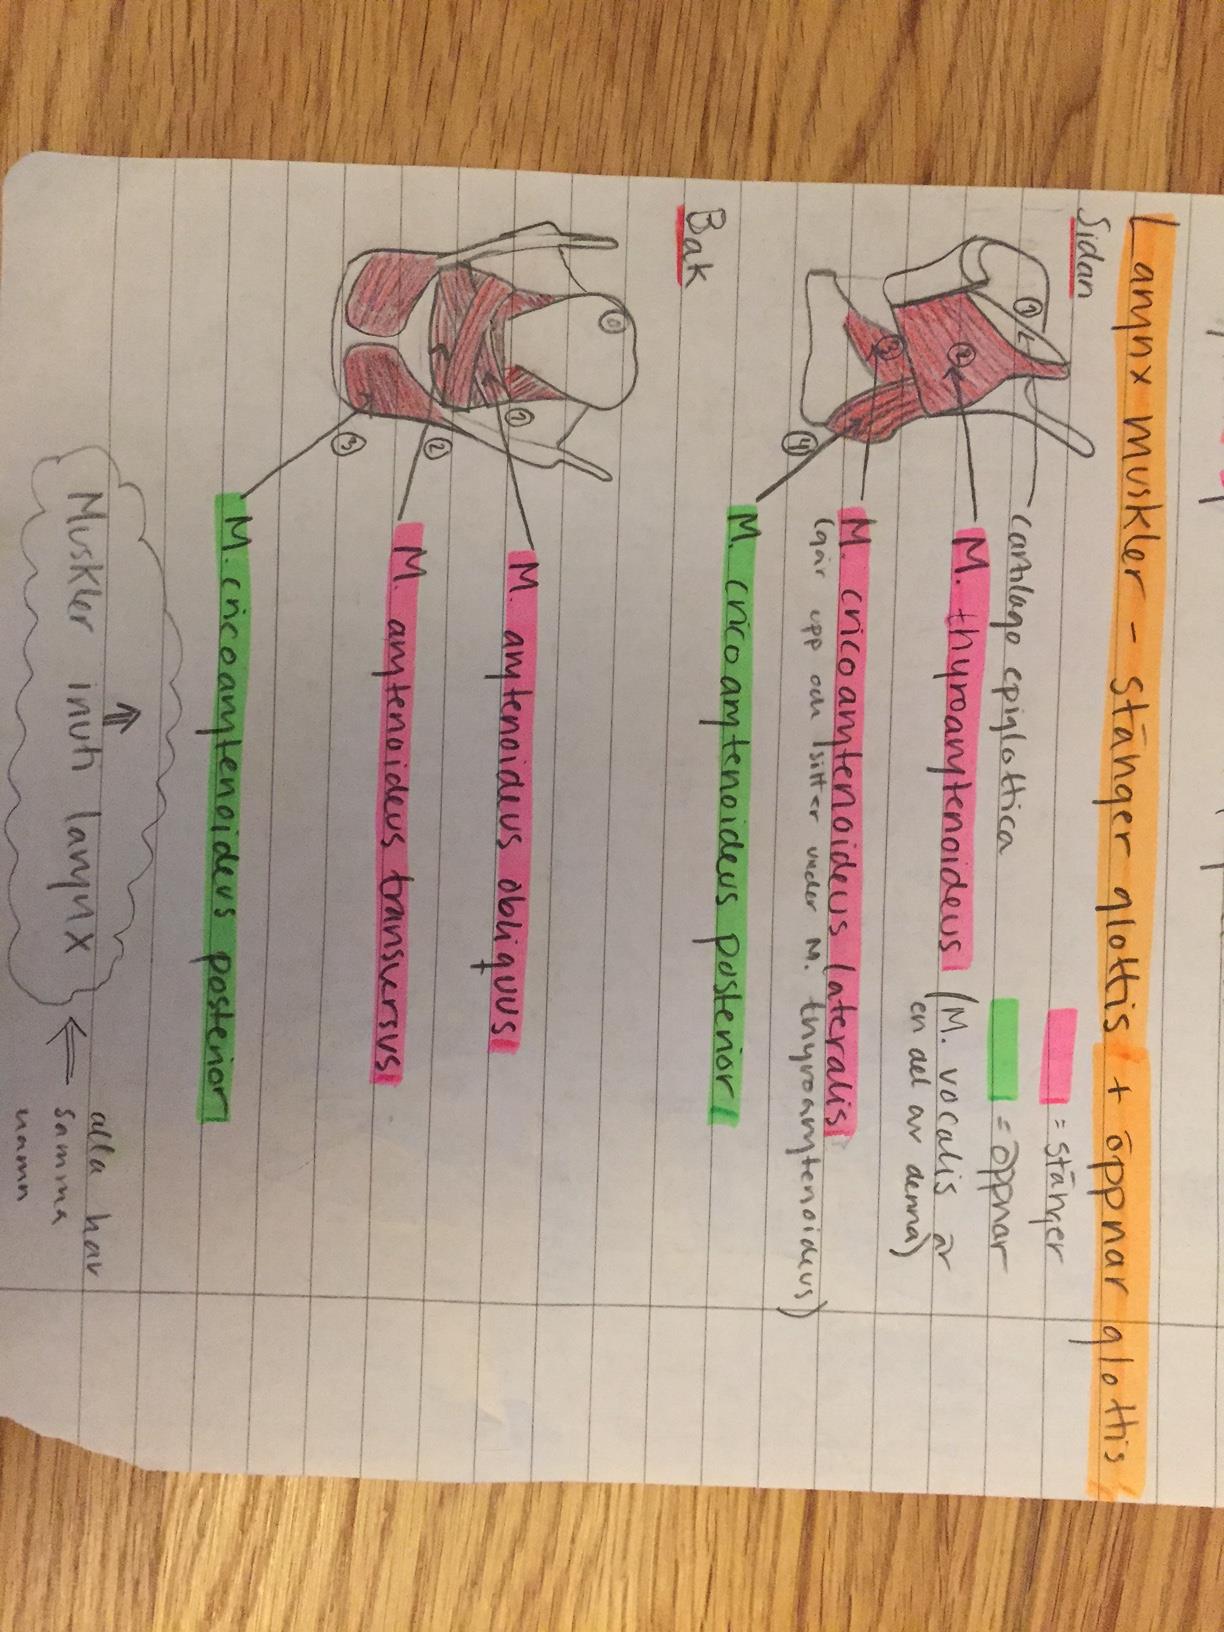 Larynx muskler - stänger glottis + öppnar glottis
Sidan
= stänger
= öppnar
①
cartilago epiglottica
②
M. thyroarytenoideus
(M. vocalis är
en del av denna)
③
M. cricoarytenoideus lateralis
(går upp och sitter under M. thyroarytenoideus)
④
M. cricoarytenoideus posterior
Bak
⓪
①
M. arytenoideus obliquus
②
M. arytenoideus transversus
③
M. cricoarytenoideus posterior
Muskler inuti larynx
alla har
samma
namn